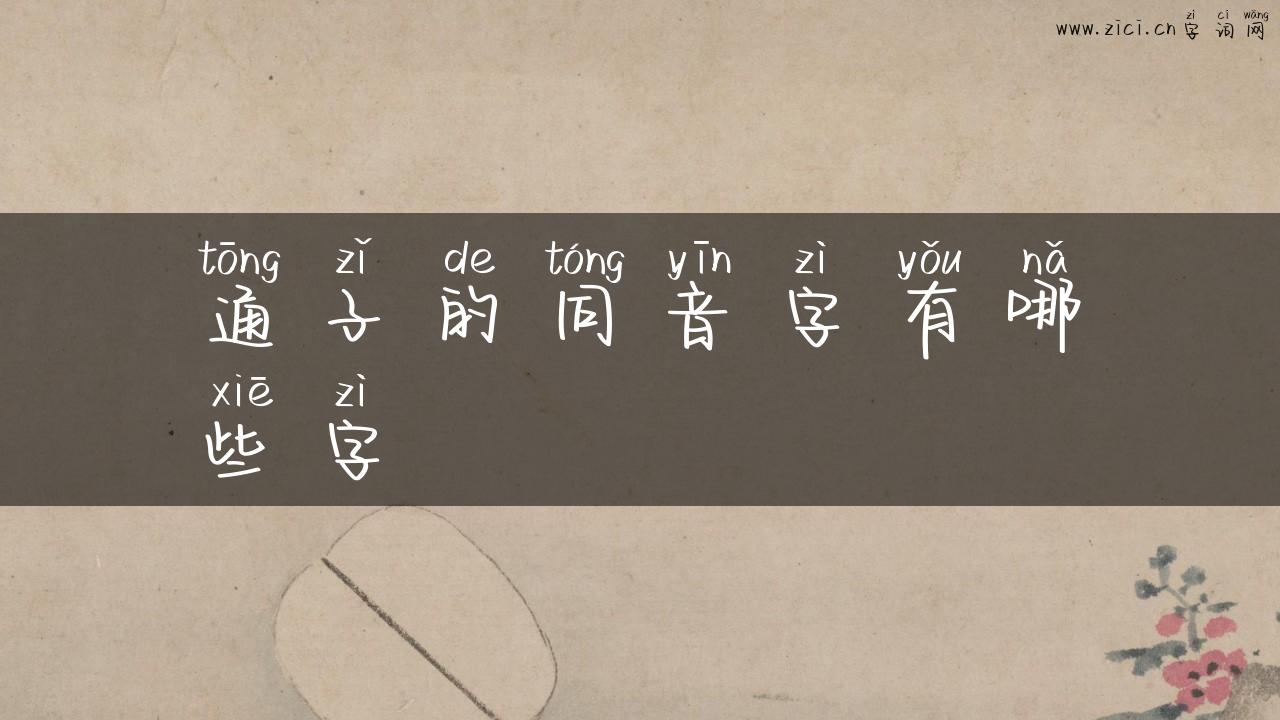 zì cí wǎng
www.zici.cn 字 词 网
tōng zǐ de tóng yīn zì yǒu nǎ
通 子 的 同 音 字 有 哪
xiē zì
些 字